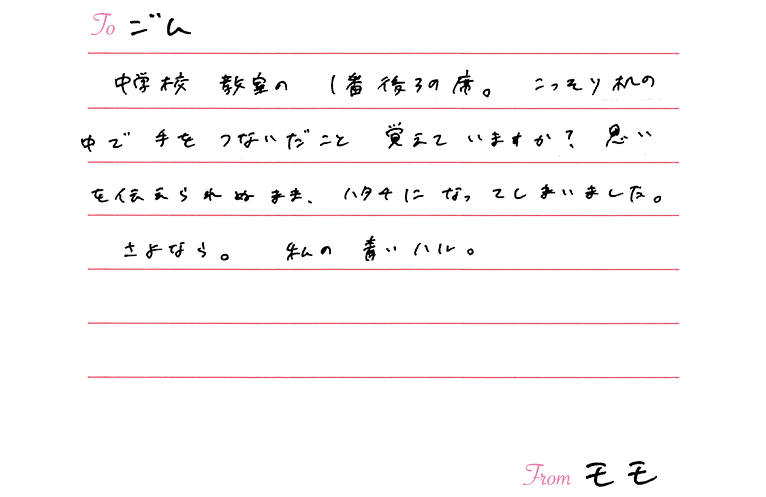 To ごん
中学校 教室の 1番後ろの席。 こっそり机の
中で 手を つないだこと 覚えていますか? 思い
を伝えられぬまま、ハタチに なってしまいました。
さよなら。 私の 青いハル。
From モモ